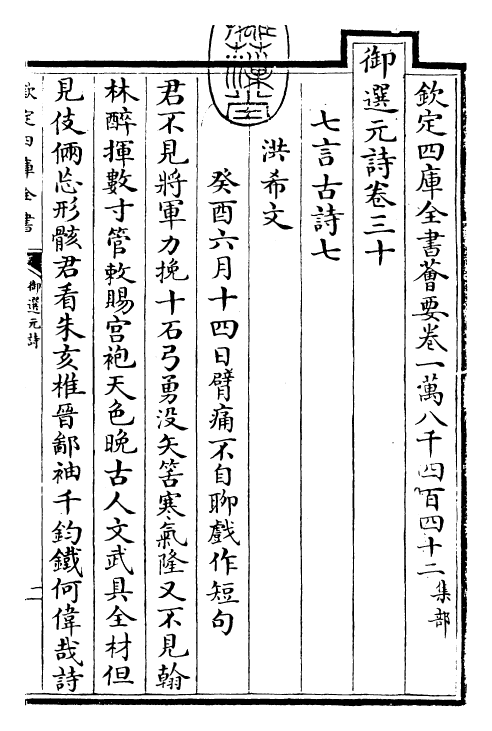 欽定四庫全書薈要卷一萬八千四百四十二 集部
御選元詩卷三十
七言古詩七
洪希文
癸酉六月十四日臂痛不自聊戲作短句
君不見將軍力挽十石弓勇没矢筈寒氣隆又不見翰
林醉揮數寸管敕賜宫袍天色晚古人文武具全材但
見伎倆忘形骸君看朱亥椎晉鄙袖千鈞鐵何偉哉詩
欽定四庫全書
御選元詩